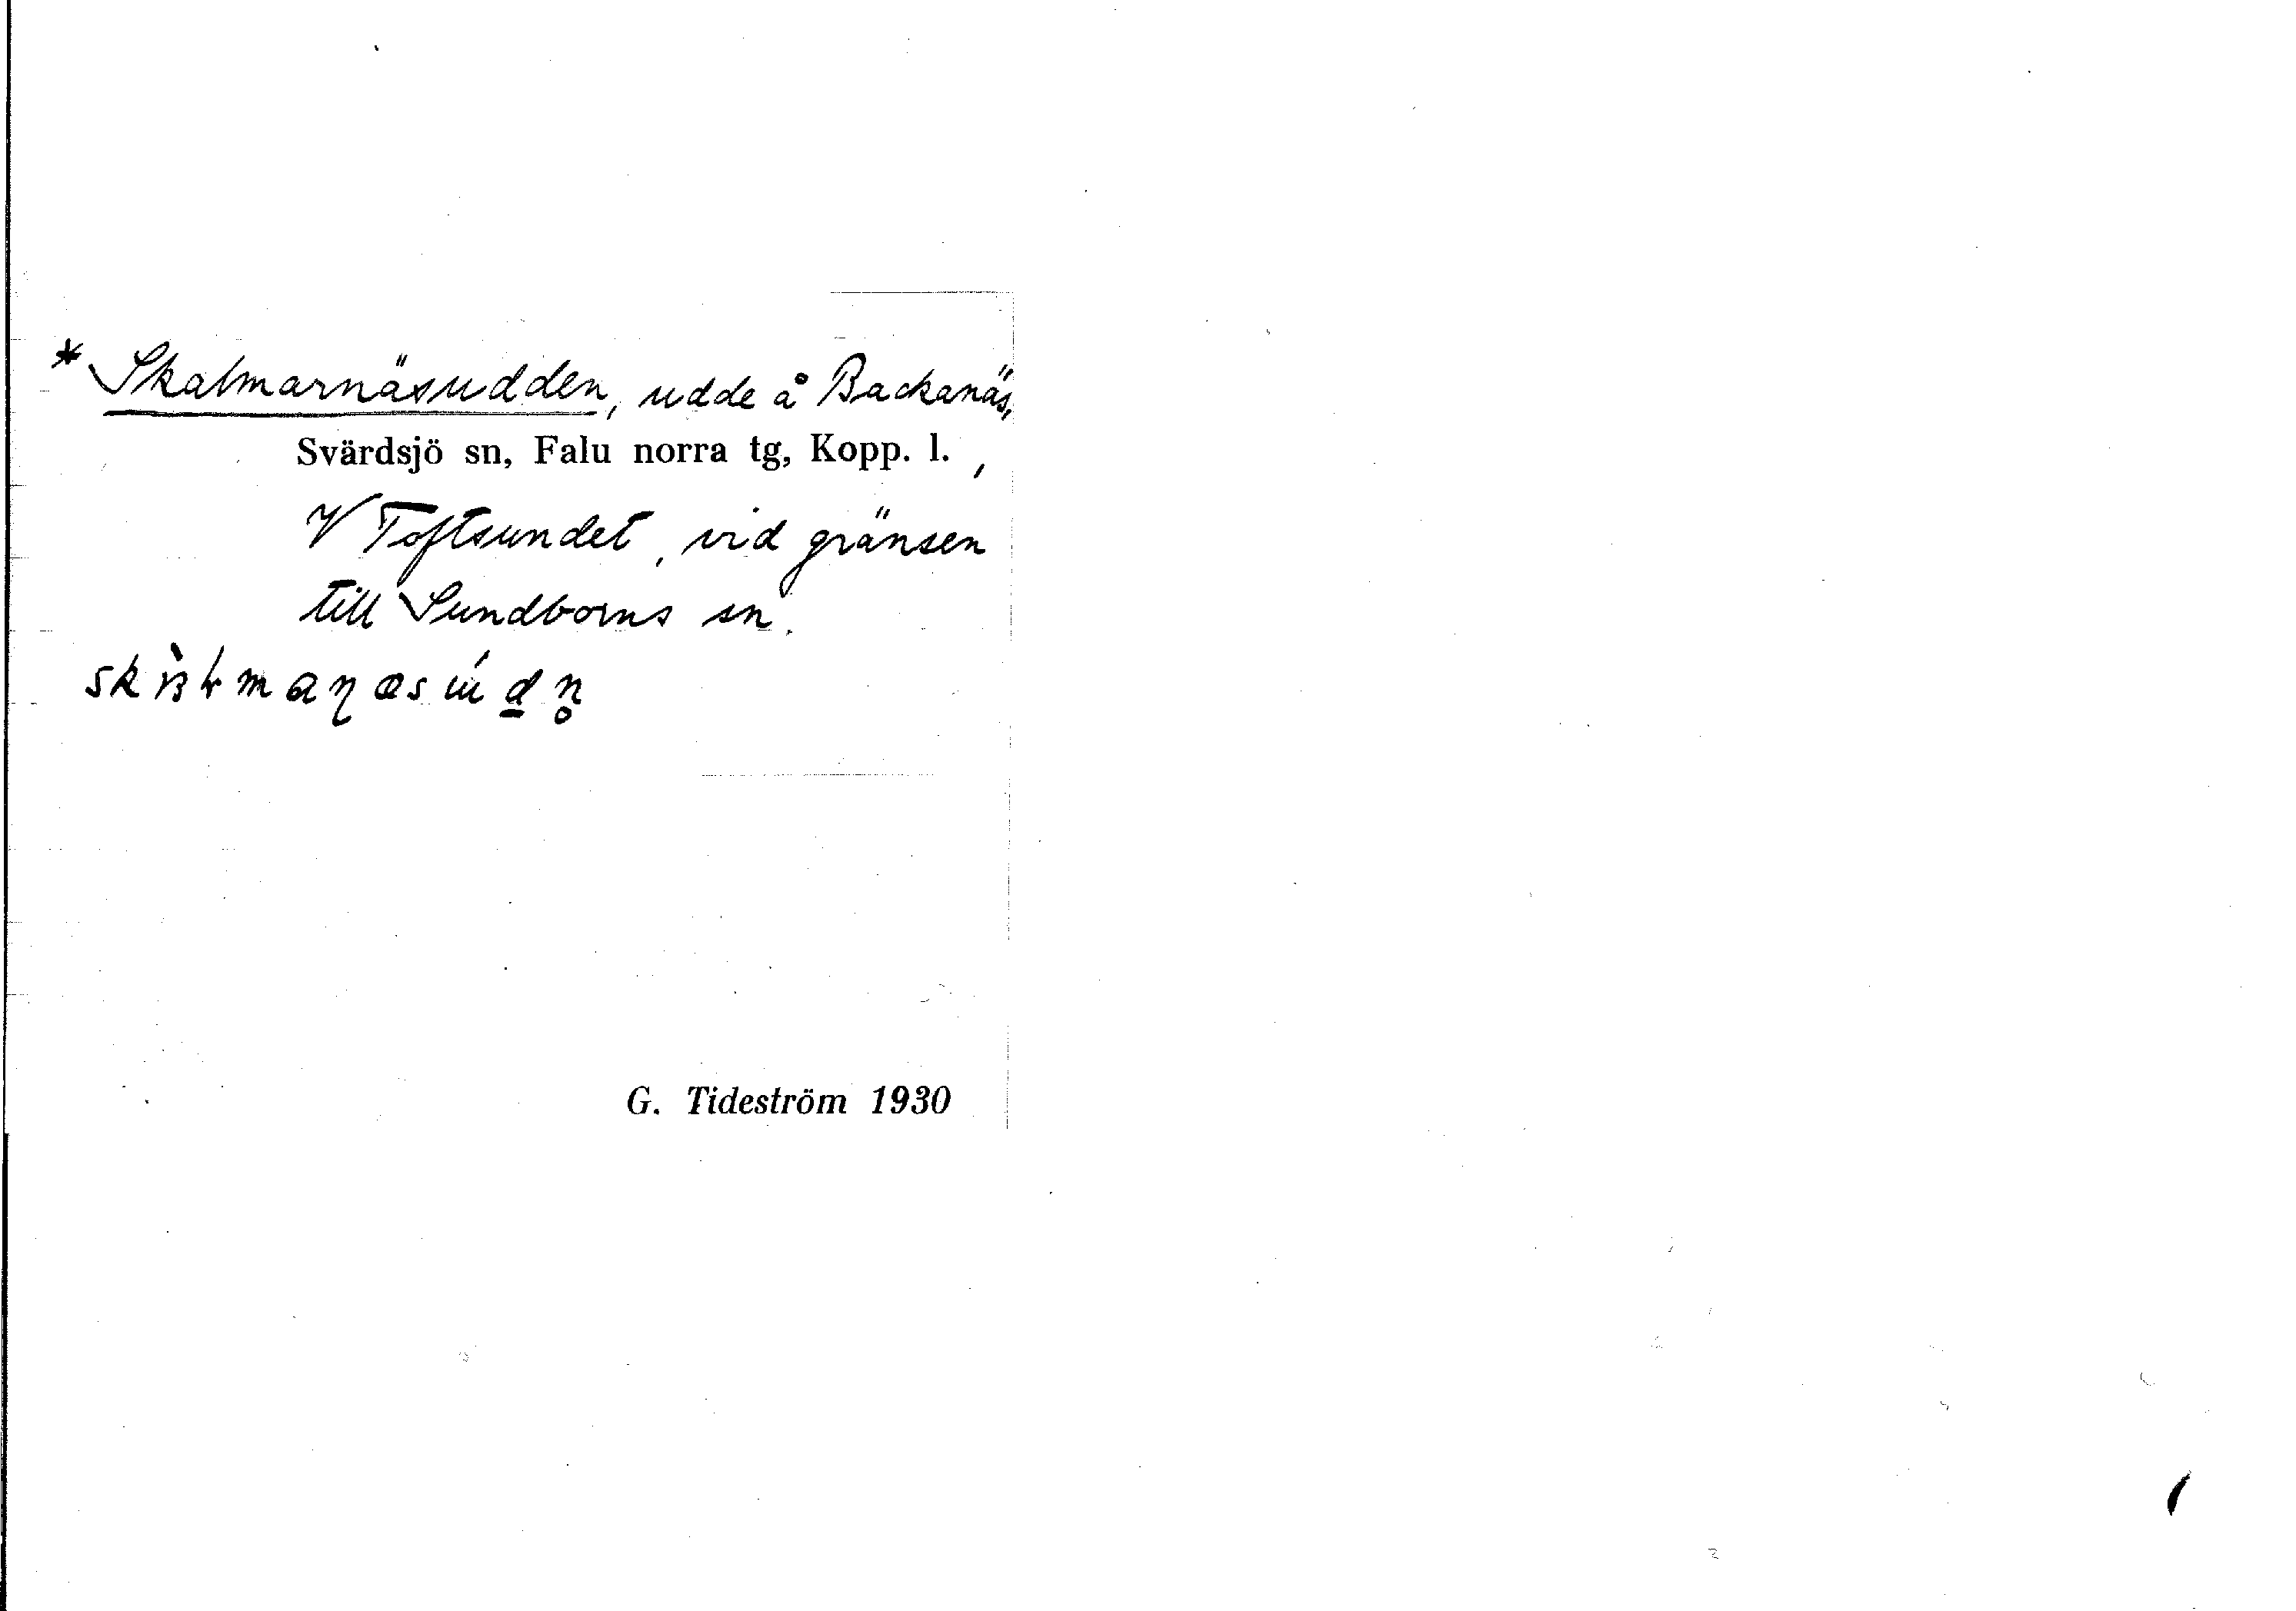 * Skalmarnäsudden, udde å Backanäs,
Svärdsjö sn, Falu norra tg, Kopp. l. ,
V Toftsundet, vid gränsen
till Sundborns sn.
G. Tideström 1930